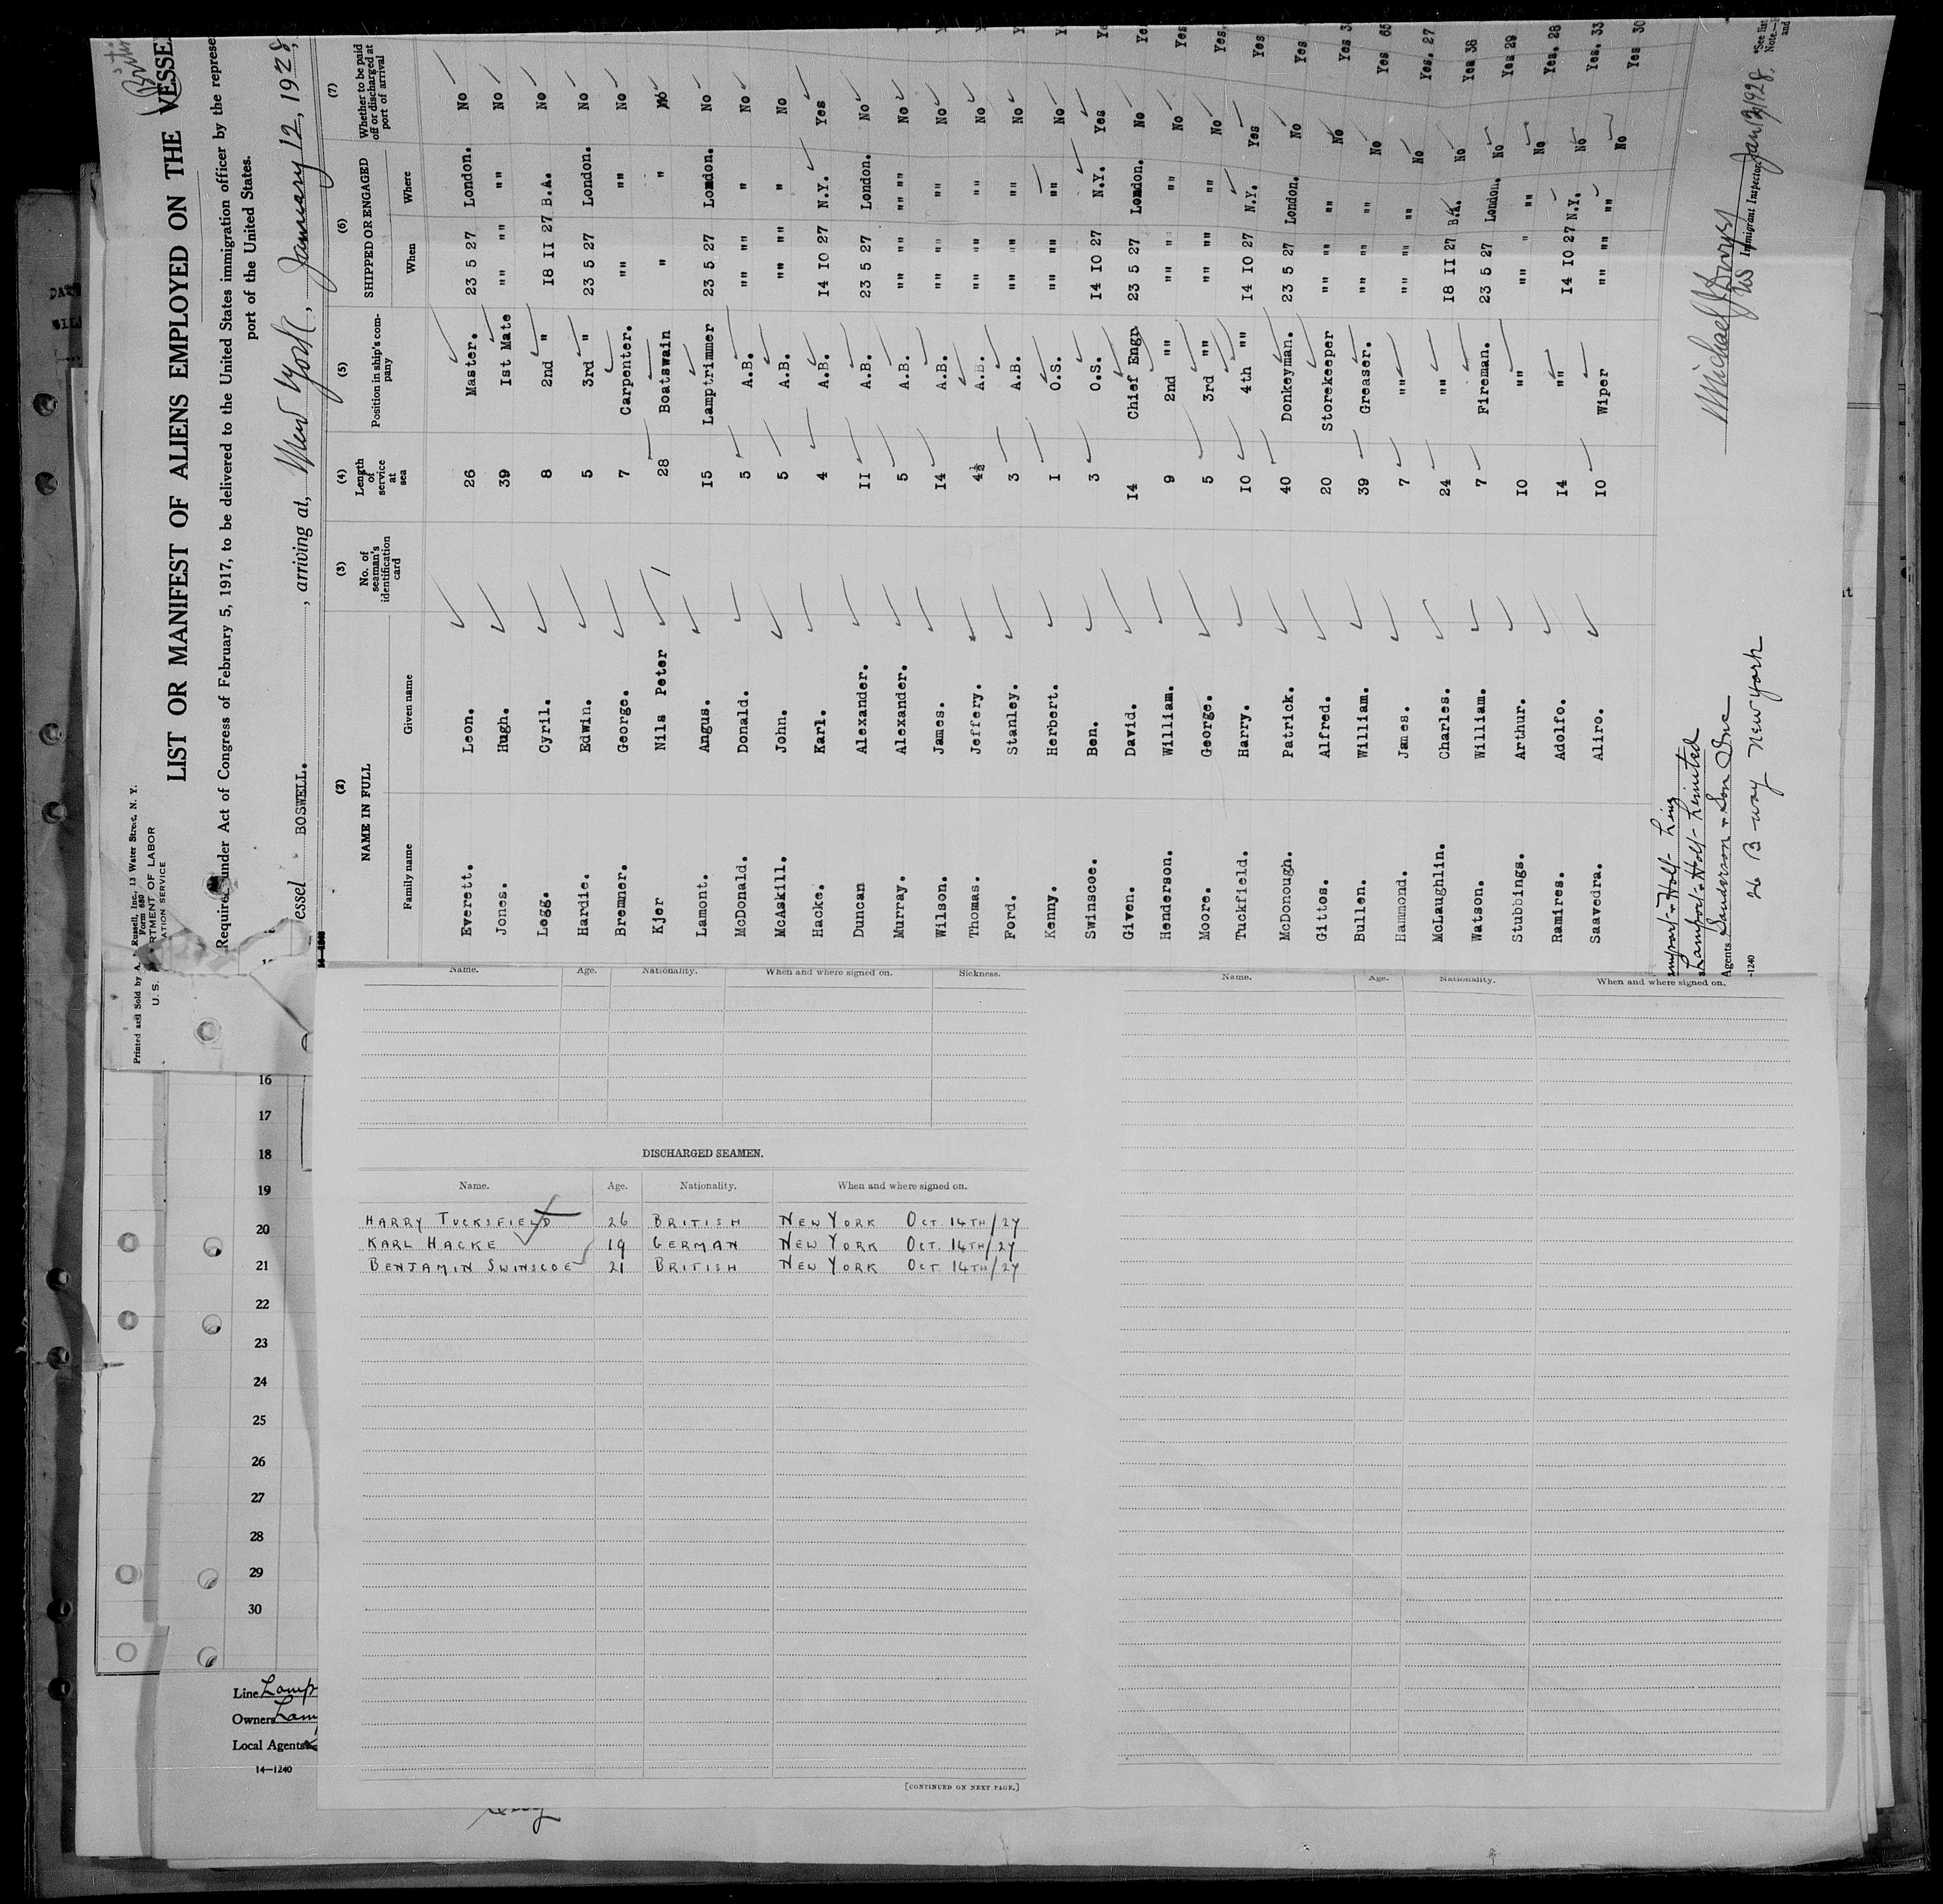 Printed and Sold by A. Russell, Inc., 13 Water Street, N. Y.
Form 680
U. S. DEPARTMENT OF LABOR
IMMIGRATION SERVICE
(British
LIST OR MANIFEST OF ALIENS EMPLOYED ON THE VESSEL
Required under Act of Congress of February 5, 1917, to be delivered to the United States immigration officer by the represe
port of the United States.
essel BOSWELL. , arriving at, New York, January 12, 1928,
(2) (3) (4) (5) (6) (7)
NAME IN FULL No. of seaman's identification card Length of service at sea Position in ship's company SHIPPED OR ENGAGED Whether to be paid off or discharged at port of arrival
Family name Given name When Where
Everett. Leon. 26 Master. 23 5 27 London. No
Jones. Hugh. 39 1st Mate "" "" "" No
Legg. Cyril. 8 2nd " 18 11 27 B.A. No
Hardie. Edwin. 5 3rd " 23 5 27 London. No
Bremner. George. 7 Carpenter. "" "" No
Kjer Nils Peter 28 Boatswain " " No
Lamont. Angus. 15 Lamptrimmer 23 5 27 London. No
McDonald. Donald. 5 A.B. "" "" " No
McAskill. John. 5 A.B. "" "" " No
Hacke. Karl. 4 A.B. 14 10 27 N.Y. Yes
Duncan Alexander. 11 A.B. 23 5 27 London. No
Murray. Alexander. 5 A.B. "" "" "" "" No
Wilson. James. 14 A.B. "" "" "" No
Thomas. Jeffery. 4½ A.B. "" "" "" No
Ford. Stanley. 3 A.B. "" "" "" No
Kenny. Herbert. 1 O.S. "" "" "" No
Swinscoe. Ben. 3 O.S. 14 10 27 N.Y. Yes
Given. David. 14 Chief Engr. 23 5 27 London. No
Henderson. William. 9 2nd "" "" "" "" No
Moore. George. 5 3rd "" "" "" "" No
Tuckfield. Harry. 10 4th "" 14 10 27 N.Y. Yes
McDonough. Patrick. 40 Donkeyman. 23 5 27 London. No
Gittos. Alfred. 20 Storekeeper "" "" "" No
Bullen. William. 39 Greaser. "" "" "" No
Hammond. James. 7 "" "" "" "" No
McLaughlin. Charles. 24 "" 18 11 27 B.A. No
Watson. William. 7 Fireman. 23 5 27 London. No
Stubbings. Arthur. 10 "" "" " "" No
Ramires. Adolfo. 14 "" 14 10 27 N.Y. No
Saavedra. Aliro. 10 Wiper "" "" "" No
Yes 65
Yes. 27
Yes 38
Yes 29
Yes. 28
Yes. 33
Yes 30
Lamport & Holt Limited
Agents Sanderson & Son Inc
26 B way New York
Immigrant Inspector. Jan 12/1928.
*See list
Note.—
and
-1240
Name. Age. Nationality. When and where signed on. Sickness.
DISCHARGED SEAMEN.
Name. Age. Nationality. When and where signed on.
HARRY TUCKSFIELD 26 BRITISH NEW YORK OCT. 14TH/27
KARL HACKE 19 GERMAN NEW YORK OCT. 14TH/27
BENJAMIN SWINSCOE 21 BRITISH NEW YORK OCT. 14TH/27
[CONTINUED ON NEXT PAGE.]
Name. Age. Nationality. When and where signed on.
16
17
18
19
20
21
22
23
24
25
26
27
28
29
30
Line Lamp
Owners Lam
Local Agents
14—1240